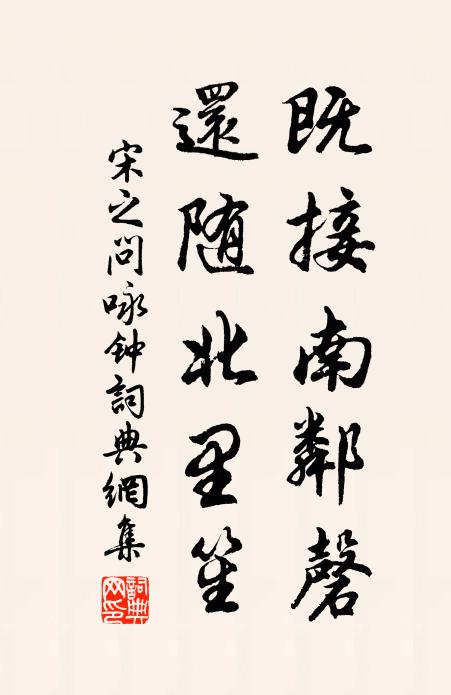 既接南鄰磬
還随北里笙
宋之问咏钟詞典網集
詞典网印